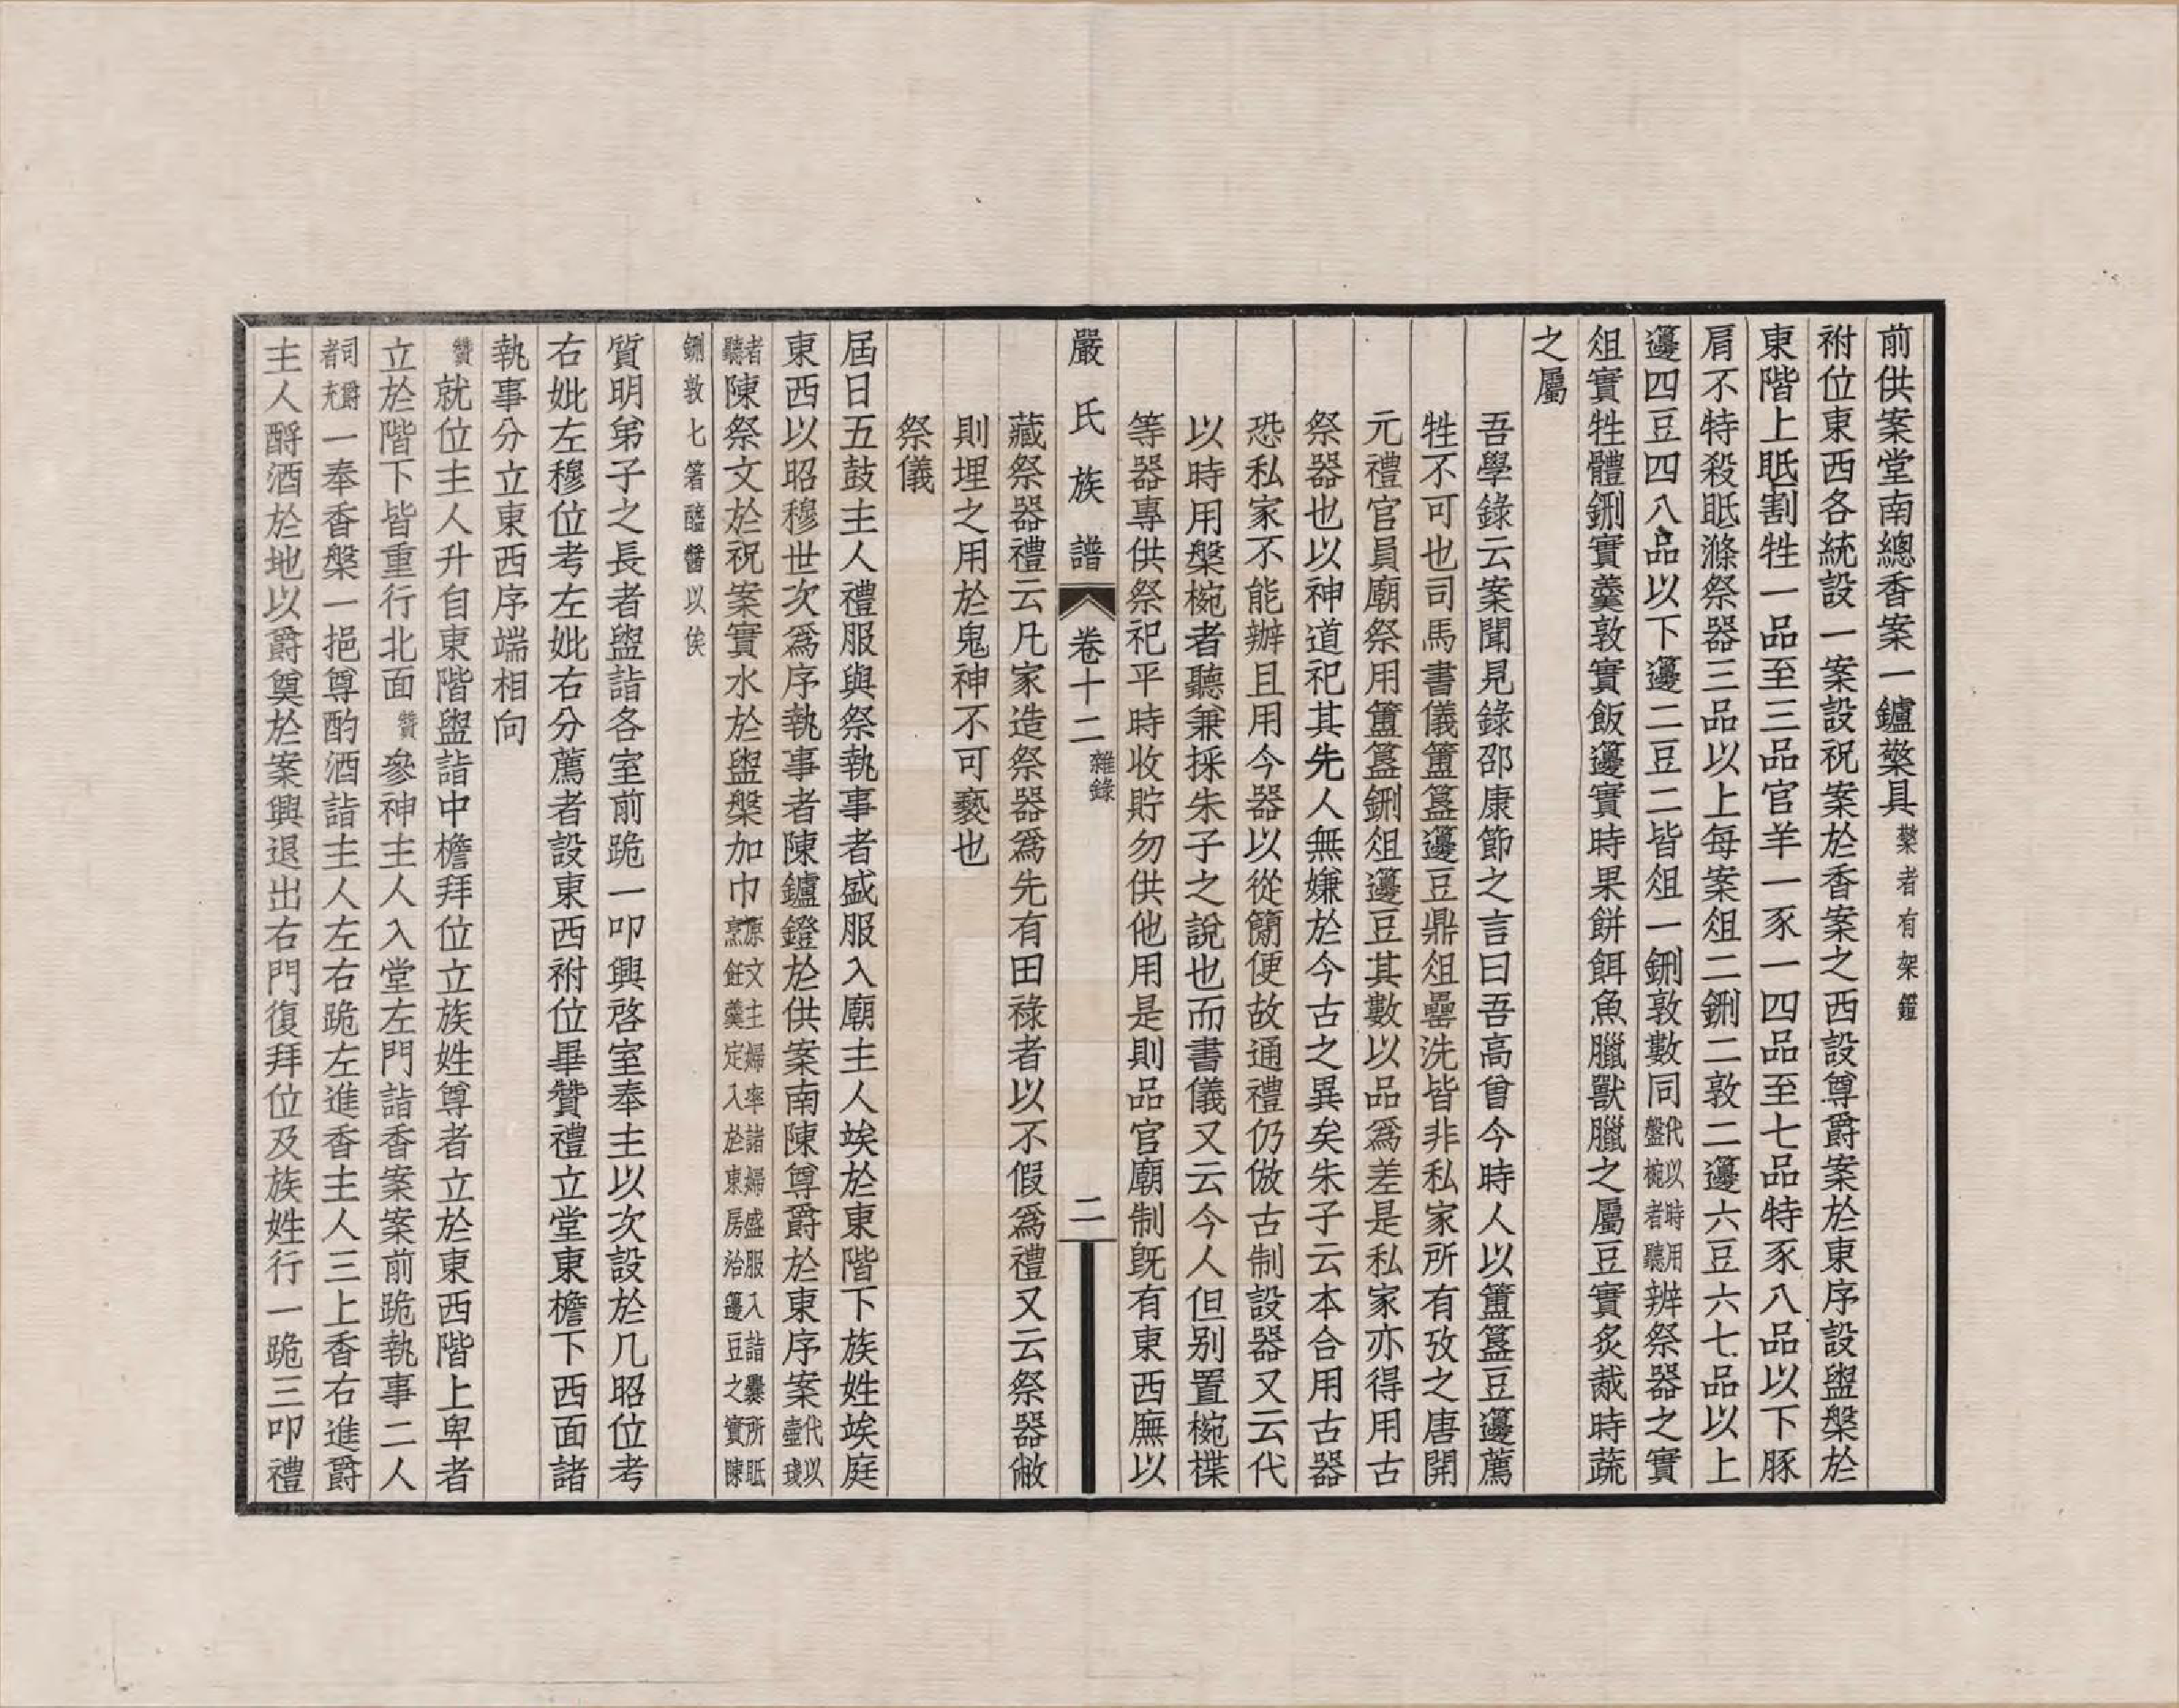 前供案堂南總香案一鑪檠具檠者有架鐙
祔位東西各統設一案設祝案於香案之西設尊爵案於東序設盥槃於
東階上眡割牲一品至三品官羊一豕一四品至七品特豕八品以下豚
肩不特殺眡滌祭器三品以上每案俎二鉶二敦二籩六豆六七品以上
籩四豆四八品以下籩二豆二皆俎一鉶敦數同代以時用盤椀者聽辨祭器之實
俎實牲體鉶實羹敦實飯籩實時果餅餌魚臘獸臘之屬豆實炙胾時蔬
之屬
吾學錄云案聞見錄邵康節之言曰吾高曾今時人以簠簋豆籩薦
牲不可也司馬書儀簠簋籩豆鼎俎罍洗皆非私家所有攷之唐開
元禮官員廟祭用簠簋鉶俎籩豆其數以品爲差是私家亦得用古
祭器也以神道祀其先人無嫌於今古之異矣朱子云本合用古器
恐私家不能辦且用今器以從簡便故通禮仍倣古制設器又云代
以時用槃椀者聽兼採朱子之說也而書儀又云今人但别置椀楪
等器專供祭祀平時收貯勿供他用是則品官廟制旣有東西廡以
嚴氏族譜 卷十二 雜錄 二
藏祭器禮云凡家造祭器爲先有田祿者以不假爲禮又云祭器敝
則埋之用於鬼神不可褻也
祭儀
屆日五鼓主人禮服與祭執事者盛服入廟主人竢於東階下族姓竢庭
東西以昭穆世次爲序執事者陳鑪鐙於供案南陳尊爵於東序案代以壺琖
者聽陳祭文於祝案實水於盥槃加巾原文主婦率諸婦盛服入詣爨所眡烹飪羹定入於東房治籩豆之實陳
鉶敦七箸醯醬以俟
質明弟子之長者盥詣各室前跪一叩興啓室奉主以次設於几昭位考
右妣左穆位考左妣右分薦者設東西祔位畢贊禮立堂東檐下西面諸
執事分立東西序端相向
贊就位主人升自東階盥詣中檐拜位立族姓尊者立於東西階上卑者
立於階下皆重行北面贊參神主人入堂左門詣香案案前跪執事二人
司爵者充一奉香槃一挹尊酌酒詣主人左右跪左進香主人三上香右進爵
主人酹酒於地以爵奠於案興退出右門復拜位及族姓行一跪三叩禮